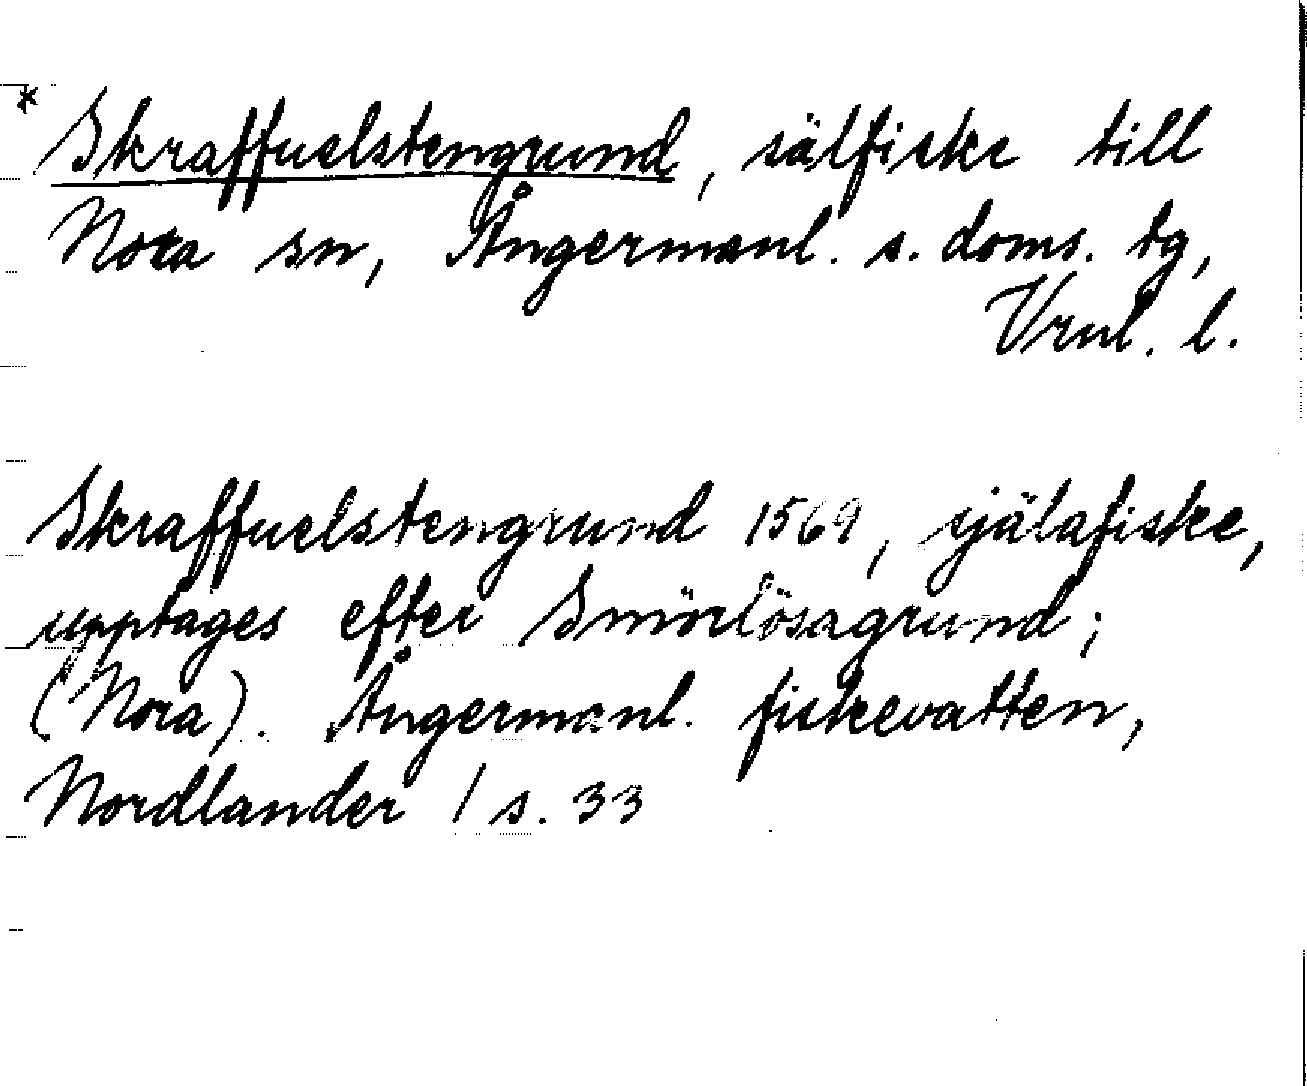 * Skraffuelstengrund, sälfiske till
Nora sn, Ångermanl. s. doms. tg,
Vrnl. l.
Skraffuelstengrund 1569, själafiske,
upptages efter Smörlösagrund;
(Nora). Ångermanl. fiskevatten,
Nordlander / s. 33